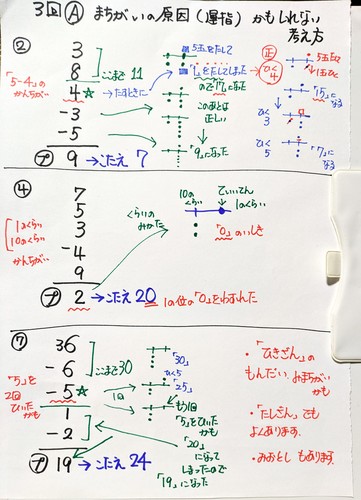 3回Ⓐ まちがいの原因(運指)かもしれない
考え方
②
3
8 ここまで 11
4☆ →たすときに
-3
-5
㋐ 9 →こたえ 7
「5-4」の
かんちがい
5玉をたして
「1」をたしてしまった
ので「17」になった
このあとは
正しい
「9」になった
正
ひく4
5玉たす
1玉ひく
「15」になる
ひく3
ひく5
「7」になる
④
7
5
3
-4
9
2 →こたえ 20 1の位の「0」をわすれた
1のくらい
10のくらい
かんちがい
くらいの
みかた
10の
くらい
ていいてん
1のくらい
「0」のいしき
⑦
36
-6 ここまで30
-5☆
1
-2
19 →こたえ 24
「5」を
2回
ひいた
かも
「30」
ひく5
「25」
1回
もう1回
「5」をひいた
かも
「20」
になって
しまったので
「19」になった
・「ひきざん」の
もんだい、みまちがい
かも
・「たしざん」でも
よくあります。
・みおとしもあります。